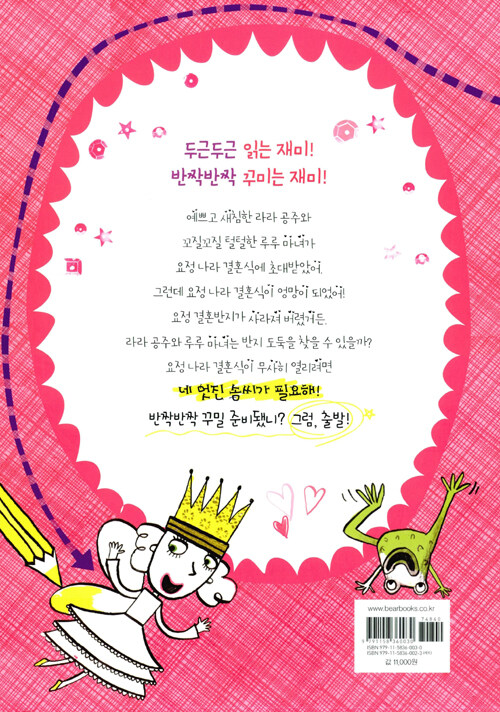 두근두근 읽는 재미!
반짝반짝 꾸미는 재미!
예쁘고 새침한 라라 공주와
꼬질꼬질 털털한 루루 마녀가
요정 나라 결혼식에 초대받았어.
그런데 요정 나라 결혼식이 엉망이 되었어!
요정 결혼반지가 사라져 버렸거든.
라라 공주와 루루 마녀는 반지 도둑을 찾을 수 있을까?
요정 나라 결혼식이 무사히 열리려면
네 멋진 솜씨가 필요해!
반짝반짝 꾸밀 준비됐니? 그럼, 출발!
www.bearbooks.co.kr
74860
9 791158 360030
ISBN 979-11-5836-003-0
ISBN 979-11-5836-002-3
값 11,000원